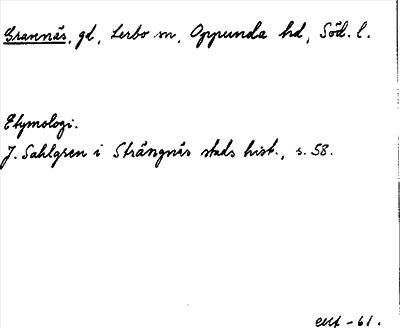 Grannäs, gd, Lerbo sn, Oppunda hd, Söd. l.
Etymologi.
J. Sahlgren i Strängnäs stads hist., s. 58.
-61.